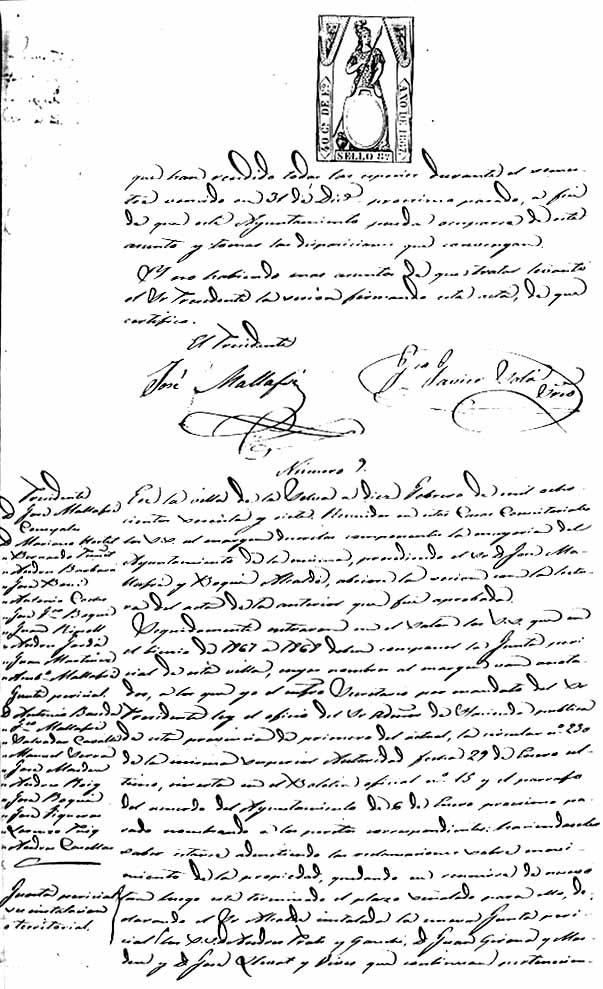 40 Cs. DE Eº.
AÑO DE 1867.
SELLO 8º.
que han vendido todas las especies durante el semes-
tre vencido en 31 de Dicbre. procsimo pasado, a fin
de que este Ayuntamiento pueda ocuparse de este
asunto y tomar las disposiciones que convengan.
Y no habiendo mas asuntos de que tratar levantó
el Sr. Presidente la sesion firmando esta acta, de que
certifico.
El Presidente
José Mallafré
Fco. Javier
Srio.
Número 9.
Presidente
D. José Mallafré
Concejales
D. Mariano
" Bernardo
" Andres Barbará
" José
" Antonio
" José Fco. Boqué
" Juan Ripoll
" Andres Jordá
" Juan Montserrat
" Mallafré
Junta pericial.
D. Antonio
" Fco. Mallafré
" Salvador Cavallé
" Manuel Serra
" José
" Andres Roig
" José Boqué
" José Figueras
" Lorenzo Puig
" Andres Casellas
Junta pericial
su instalacion
territorial.
En la villa de la Selva a diez Febrero de mil ocho
cientos sesenta y siete. Reunidos en estas Casas Consistoriales
los SS. al margen descritos componentes la mayoria del
Ayuntamiento de la misma, presidiendo el Sr. D. José Ma-
llafré y Boqué Alcalde, abriose la sesion con la lectu-
ra del acta de la anterior que fué aprobada.
Seguidamente entraron en el salon los SS. que en
el bienio de 1867 a 1869 deben componer la Junta peri-
cial de esta villa, cuyos nombres al margen van anota-
dos, a los que yo el infro. Secretario por mandato del Sr.
Presidente leí el oficio del Sr. Admor. de Hacienda publica
de esta provincia de primero del actual, la circular nº 230
de la misma superior Autoridad fecha 29 de Enero ul-
timo, inserta en el Boletin oficial nº 15 y el parrafo
del acuerdo del Ayuntamiento de 6 de Enero procsimo pa-
sado nombrando a los peritos correspondientes: haciendoles
saber estarse admitiendo las reclamaciones sobre movi-
miento de la propiedad, quedando en reunirse de nuevo
tan luego esté terminado el plazo señalado para ello, de-
clarando el Sr. Alcalde instalada la nueva Junta peri-
cial (los SS. D. Andres y D. Juan Girona y
y D. José Llevat y que continuan pertenecien-